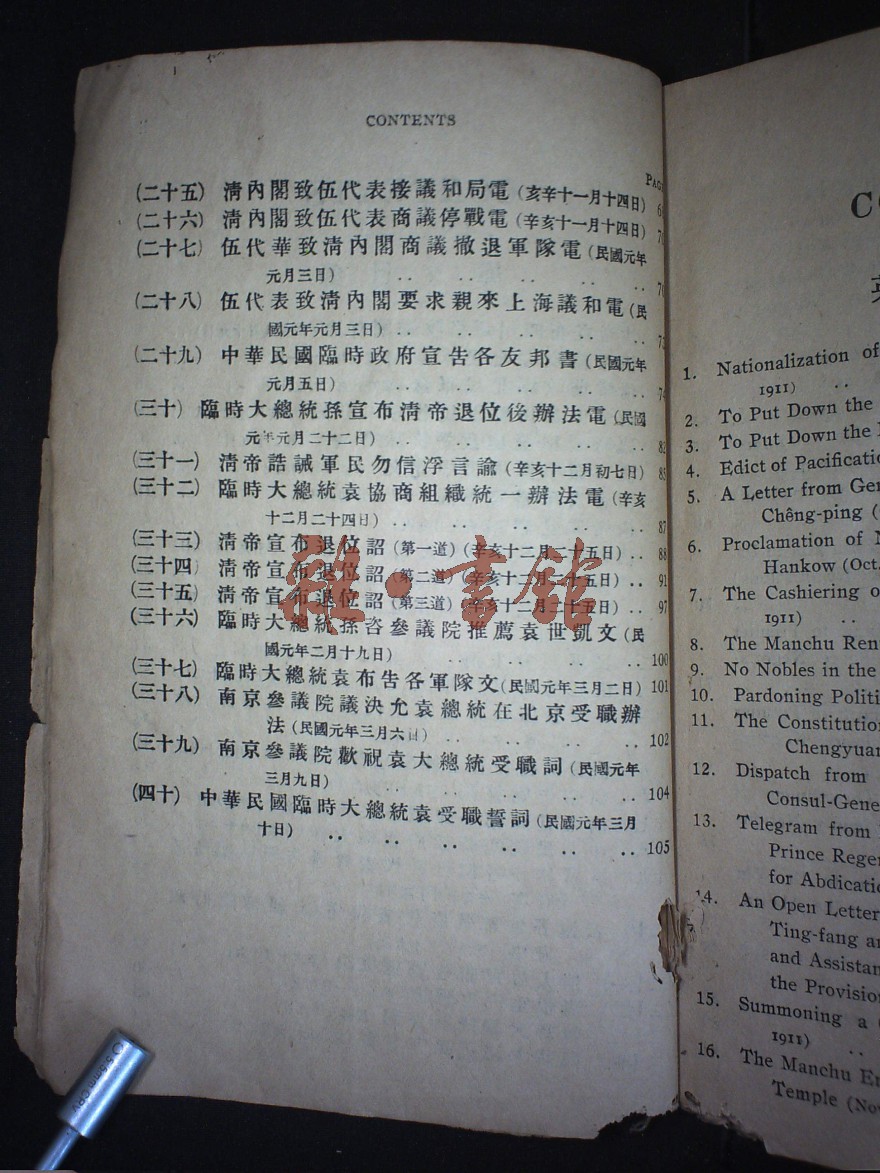 CONTENTS
PAGE
(二十五) 淸內閣致伍代表接議和局電 (亥辛十一月十四日)
(二十六) 淸內閣致伍代表商議停戰電 (辛亥十一月十四日)
(二十七) 伍代華致淸內閣商議撤退軍隊電 (民國元年
元月三日) .. .. .. .. ..
(二十八) 伍代表致淸內閣要求親來上海議和電 (民
國元年元月三日) .. .. .. .. ..
(二十九) 中華民國臨時政府宣告各友邦書 (民國元年
元月五日) .. .. .. .. .. 74
(三十) 臨時大總統孫宣布淸帝退位後辦法電 (民國
元年元月二十二日) .. .. .. .. .. 82
(三十一) 淸帝誥誡軍民勿信浮言諭 (辛亥十二月初七日) 85
(三十二) 臨時大總統袁協商組織統一辦法電 (辛亥
十二月二十四日) .. .. .. .. .. 87
(三十三) 淸帝宣布退位詔 (第一道) (辛亥十二月二十五日) .. 88
(三十四) 淸帝宣布退位詔 (第二道) (辛亥十二月二十五日) .. 91
(三十五) 淸帝宣布退位詔 (第三道) (辛亥十二月二十五日) .. 97
(三十六) 臨時大總統孫咨參議院推薦袁世凱文 (民
國元年二月十九日) .. .. .. .. 100
(三十七) 臨時大總統袁布告各軍隊文 (民國元年三月二日) 101
(三十八) 南京參議院議決允袁總統在北京受職辦
法 (民國元年三月六日) .. .. .. .. 102
(三十九) 南京參議院歡祝袁大總統受職詞 (民國元年
三月九日) .. .. .. .. .. 104
(四十) 中華民國臨時大總統袁受職誓詞 (民國元年三月
十日) .. .. .. .. .. .. 105
雜·書館
5.5mm CRV
1. Nationalization of
1911) ..
2. To Put Down the
3. To Put Down the
4. Edict of Pacificati
5. A Letter from Ge
Chêng-ping (
6. Proclamation of
Hankow (Oct.
7. The Cashiering o
1911) ..
8. The Manchu Ren
9. No Nobles in the
10. Pardoning Politi
11. The Constitution
Chengyuan
12. Dispatch from
Consul-Gene
13. Telegram from
Prince Rege
for Abdicati
14. An Open Letter
Ting-fang a
and Assistan
the Provisio
15. Summoning a
1911) ..
16. The Manchu E
Temple (Nov